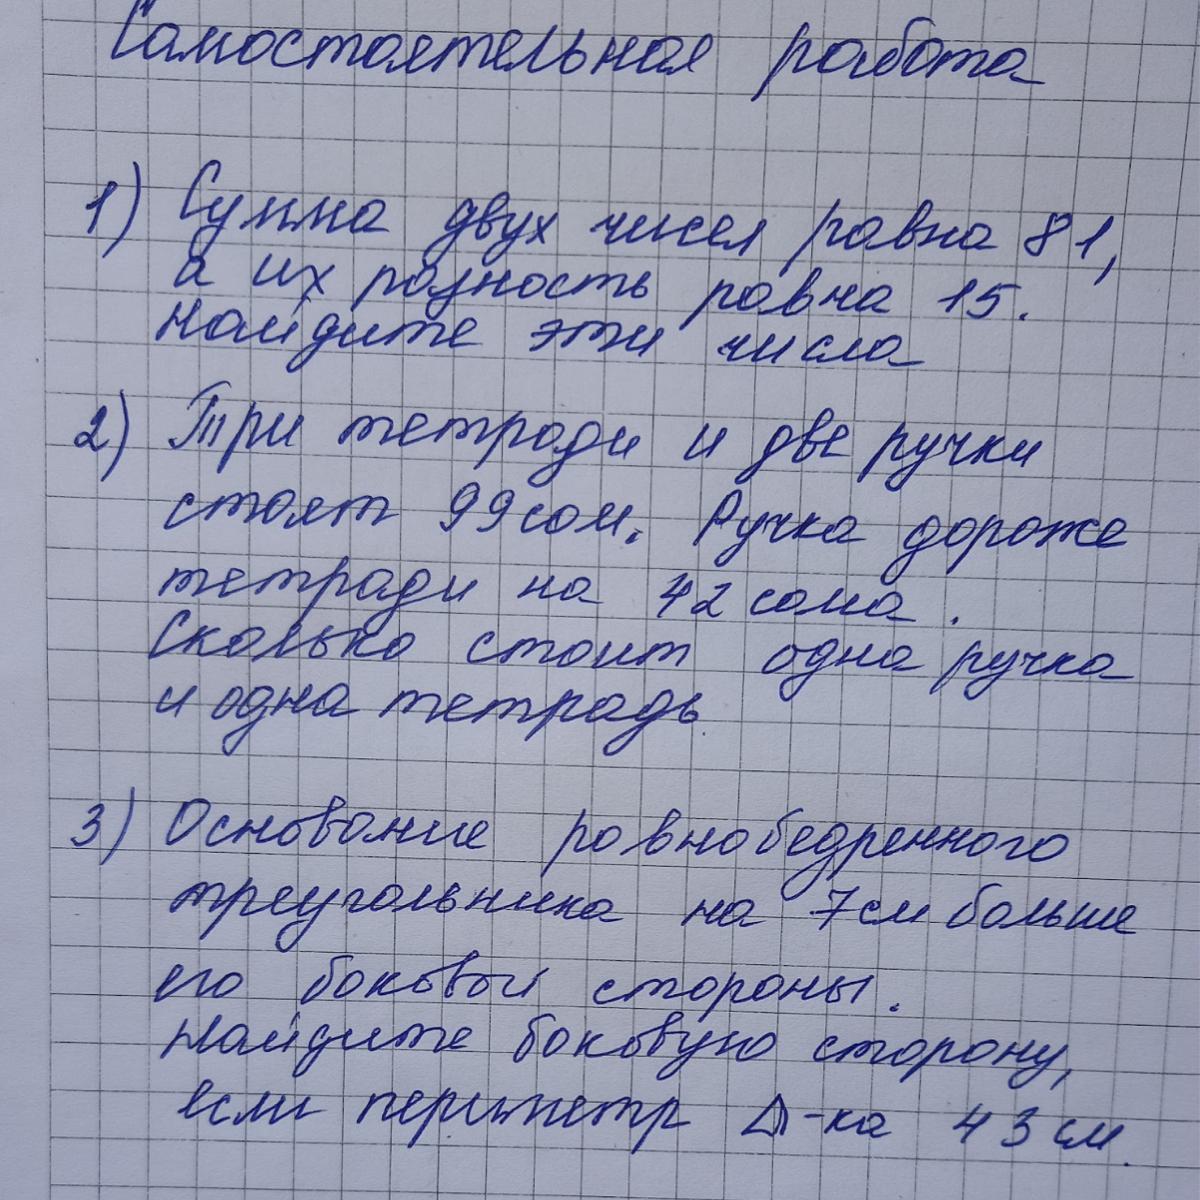 Самостоятельная работа
1) Сумма двух чисел равна 81,
а их разность равна 15.
Найдите эти числа
2) Три тетради и две ручки
стоят 99сом. Ручка дороже
тетради на 42 сома.
Сколько стоит одна ручка
и одна тетрадь
3) Основание равнобедренного
треугольника на 7см больше
его боковой стороны.
Найдите боковую сторону,
если периметр Δ-ка 43 см.